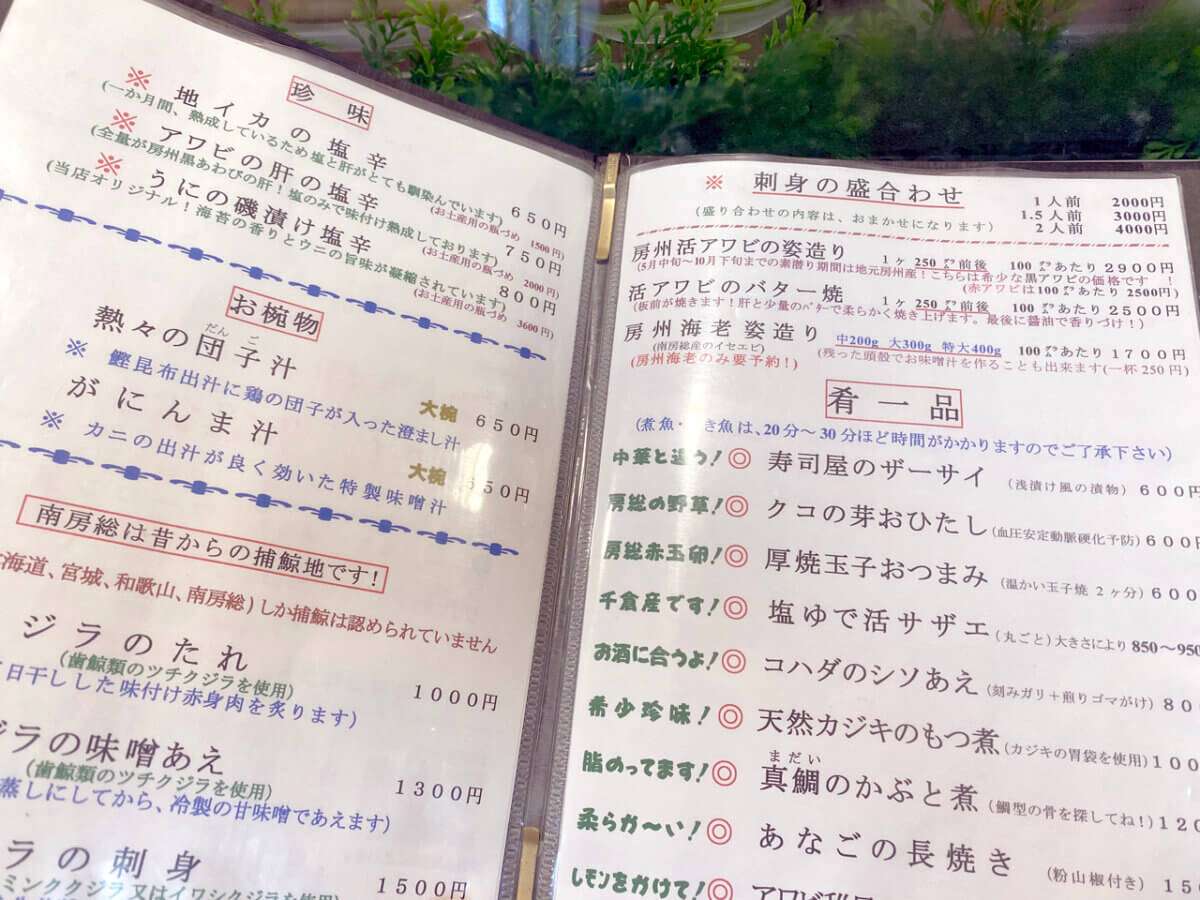 珍味
※ 地イカの塩辛 650円
(一か月間、熟成しているため塩と肝がとても馴染んでいます)
(お土産用の瓶づめ 1500円)
※ アワビの肝の塩辛 750円
(全量が房州黒あわびの肝!塩のみで味付け熟成しております)
(お土産用の瓶づめ 2000円)
※ うにの磯漬け塩辛 800円
(当店オリジナル!海苔の香りとウニの旨味が凝縮されています)
(お土産用の瓶づめ 3600円)
お椀物
熱々の団子汁 大椀 650円
だんご
※ 鰹昆布出汁に鶏の団子が入った澄まし汁
がにんま汁 大椀 650円
※ カニの出汁が良く効いた特製味噌汁
南房総は昔からの捕鯨地です!
海道、宮城、和歌山、南房総)しか捕鯨は認められていません
ジラのたれ 1000円
(歯鯨類のツチクジラを使用)
日干しした味付け赤身肉を炙ります)
ジラの味噌あえ 1300円
(歯鯨類のツチクジラを使用)
蒸しにしてから、冷製の甘味噌であえます)
ラの刺身 1500円
ミンククジラ又はイワシクジラを使用)
※ 刺身の盛合わせ
(盛り合わせの内容は、おまかせになります)
1人前 2000円
1.5人前 3000円
2人前 4000円
房州活アワビの姿造り 1ヶ250㌘前後 100㌘あたり2900円
(5月中旬~10月下旬までの素潜り期間は地元房州産!こちらは希少な黒アワビの価格です!
(赤アワビは100㌘あたり2500円)
活アワビのバター焼 1ヶ250㌘前後 100㌘あたり2500円
(板前が焼きます!肝と少量のバターで柔らかく焼き上げます。最後に醤油で香りづけ!)
房州海老姿造り 中200g 大300g 特大400g 100㌘あたり1700円
(南房総産のイセエビ)
(残った頭殻でお味噌汁を作ることも出来ます(一杯250円)
(房州海老のみ要予約!)
肴一品
(煮魚・き魚は、20分~30分ほど時間がかかりますのでご了承下さい)
中華と違う!◎ 寿司屋のザーサイ (浅漬け風の漬物) 600円
房総の野草!◎ クコの芽おひたし (血圧安定動脈硬化予防) 600円
房総赤玉卵!◎ 厚焼玉子おつまみ (温かい玉子焼 2ヶ分) 600
千倉産です!◎ 塩ゆで活サザエ (丸ごと)大きさにより 850~950
お酒に合うよ!◎ コハダのシソあえ (刻みガリ+煎りゴマがけ) 80
希少珍味!◎ 天然カジキのもつ煮 (カジキの胃袋を使用) 100
まだい
脂のってます!◎ 真鯛のかぶと煮 (鯛型の骨を探してね!) 120
柔らか~い!◎ あなごの長焼き (粉山椒付き) 150
レモンをかけて!◎ アワビ